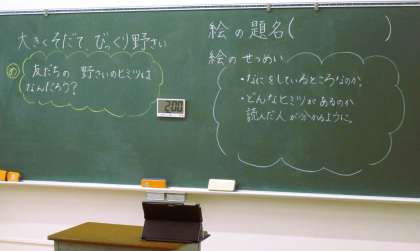 大きくそだて、びっくり野さい
め
友だちの 野さいのヒミツは
なんだろう?
2:00
絵の題名( )
絵のせつめい
・なにをしているところなのか。
・どんなヒミツがあるのか
読んだ人が分かるように。